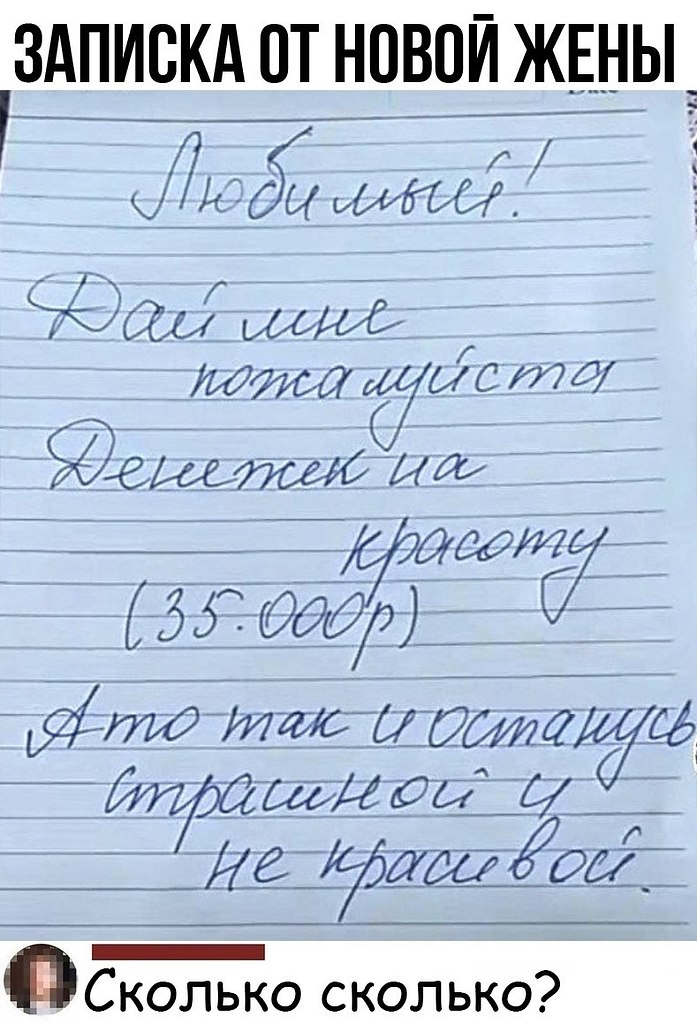 ЗАПИСКА ОТ НОВОЙ ЖЕНЫ
Любимый!
Дай мне
пожалуйста
Денежек на
красоту
(35.000р)
А то так и останусь
страшной и
не красивой.
Сколько сколько?